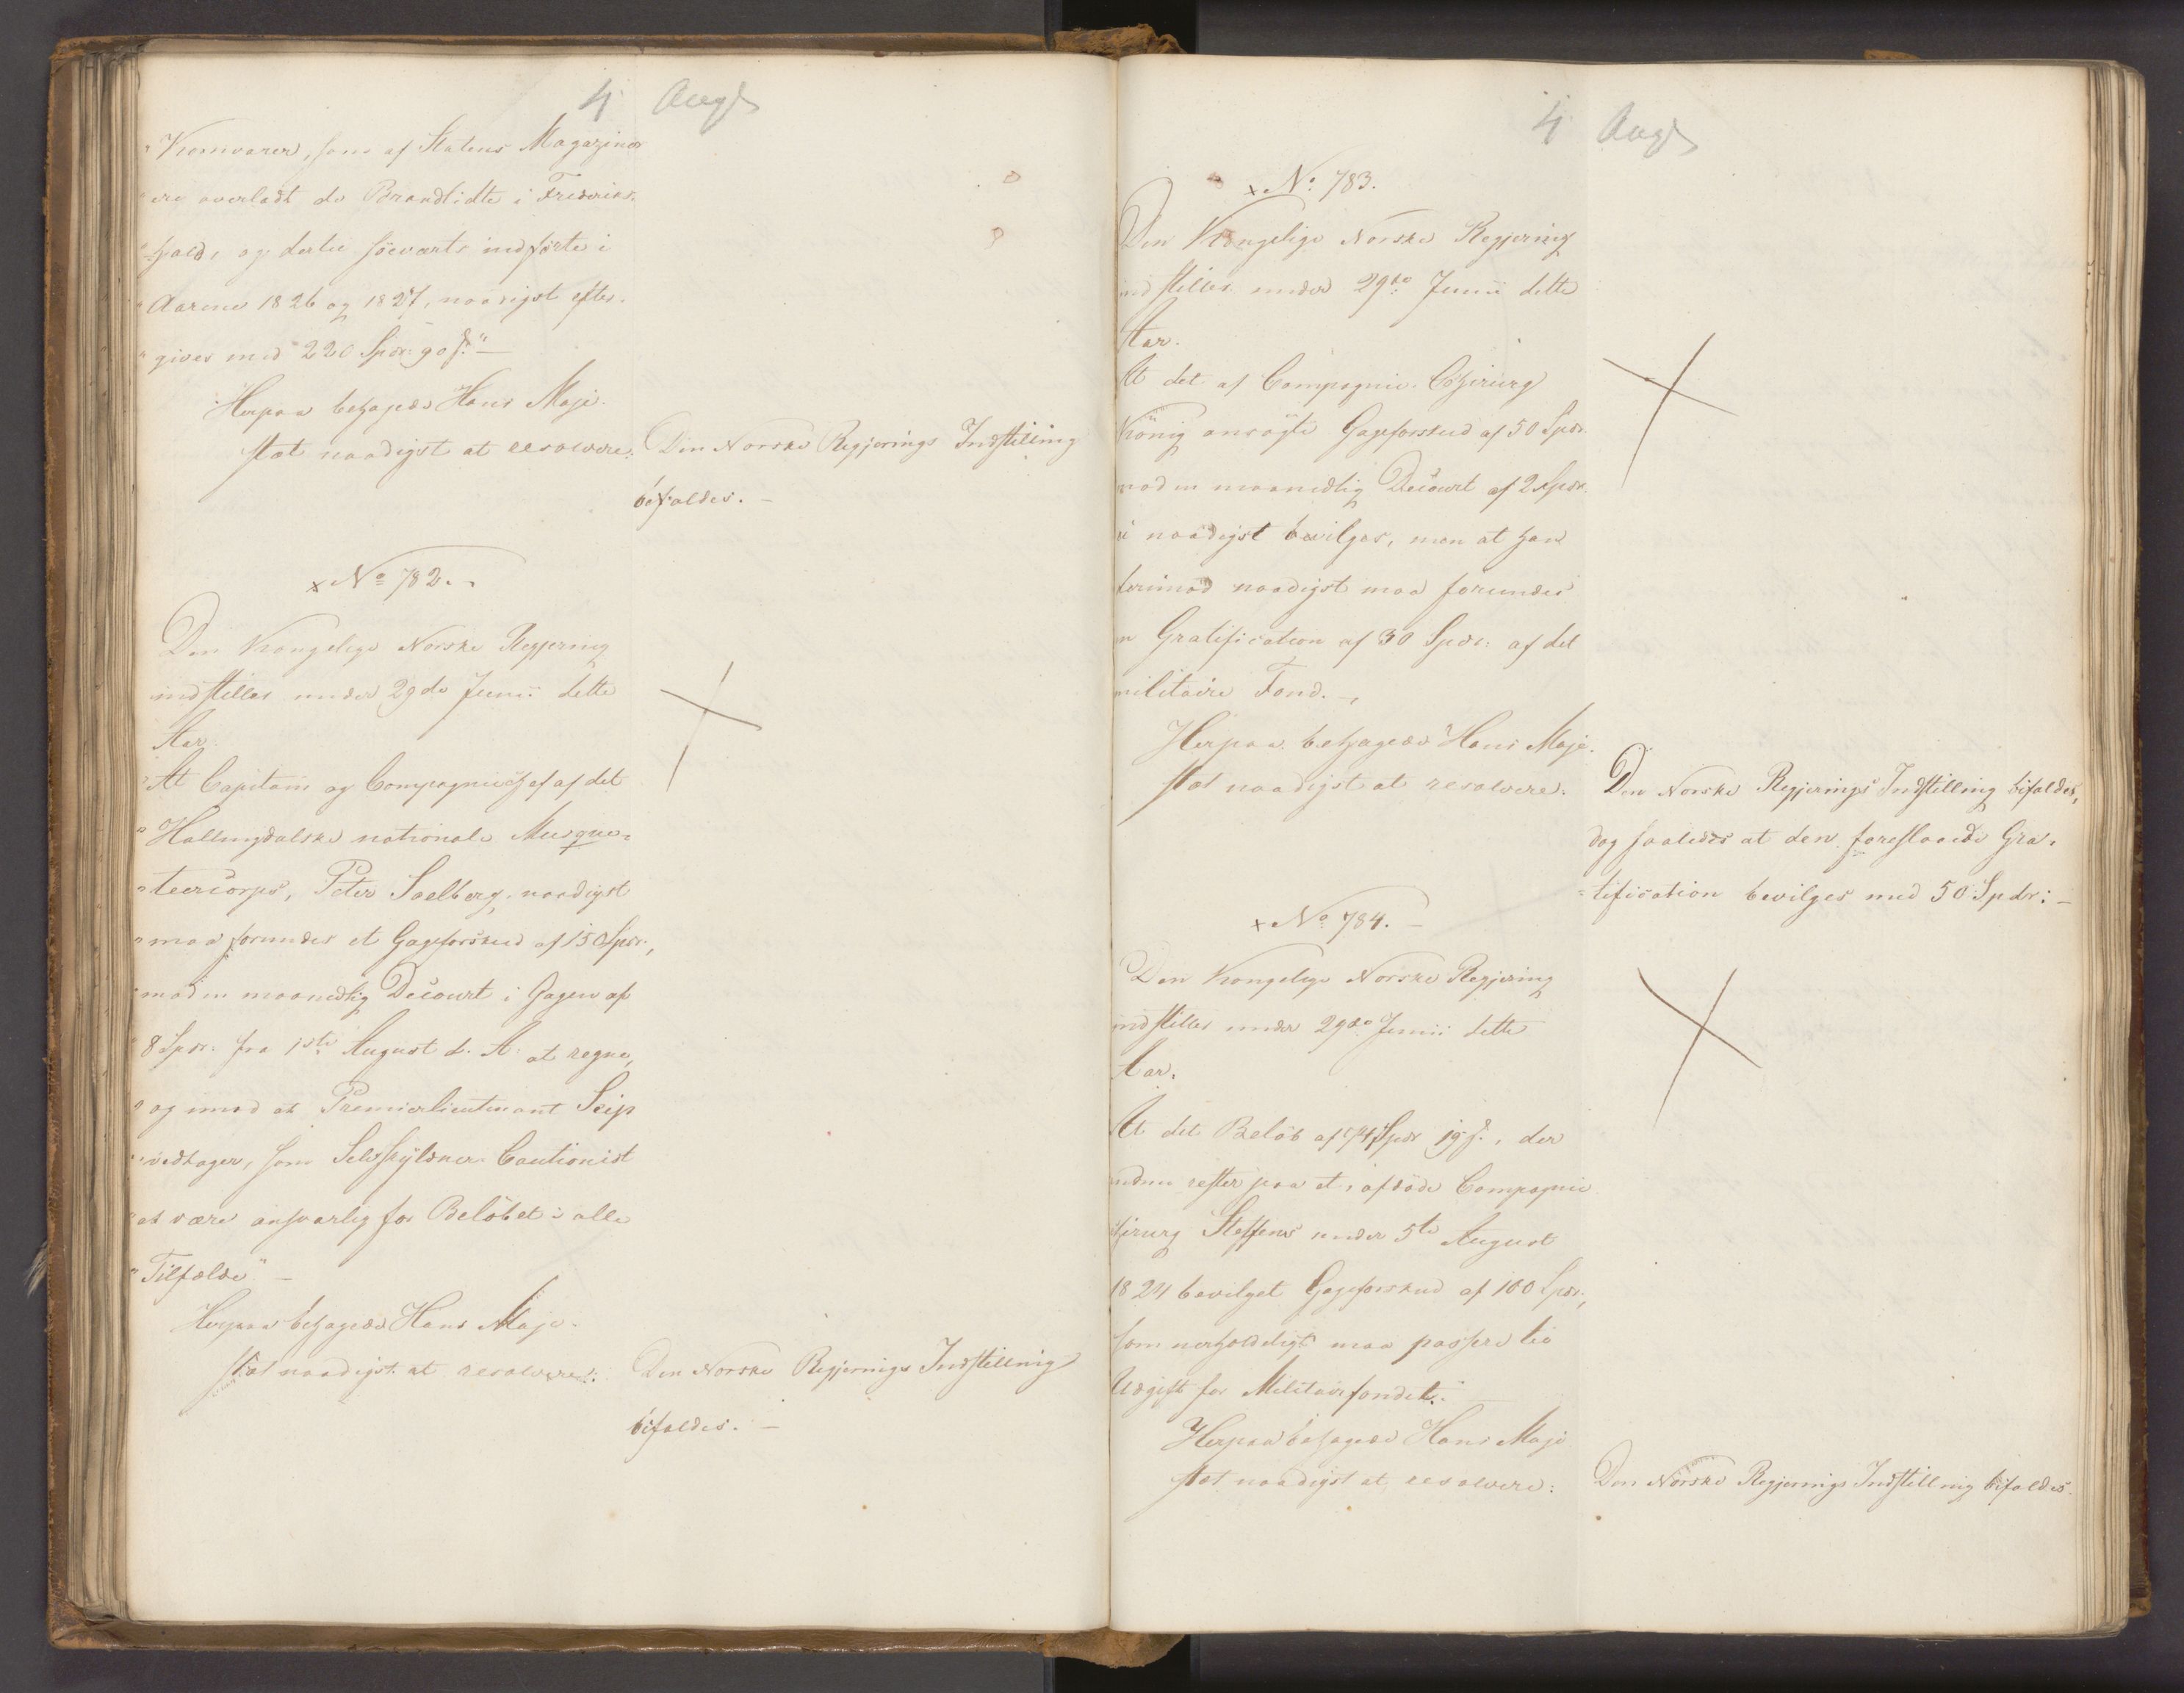 4 Augs
"Kornvarer, som af Statens Magaziner
"ere overladt de Brandlidte i Frederiks-
"hald, og dertil søeværts indførte i
"Aarene 1826 og 1827, naadigst efter-
"gives med 220 Spdr. 90 s."—
Herpaa behagede Hans Maje-
stæt naadigst at resolvere:
Den Norske Regjerings Indstilling
bifaldes. —
x No 782.
Den Kongelige Norske Regjering
indstiller under 29de Junii dette
Aar.
"At Capitain og Compagniechef af det
"Hallingdalske nationale Musque-
"teercorps, Peter Saelberg, naadigst
"maa forundes et Gageforskud af 150 Spdr.,
"mod en maanedlig Decourt i Gagen af
"8 Spdr. fra 1ste August d. A. at regne,
"og imod at Premierlieutenant Seip
"vedtager, som Selvskyldner Cautionist
"at være ansvarlig for Beløbet i alle
"Tilfælde" —
Herpaa behagede Hans Maje-
stæt naadigst at resolvere:
Den Norske Regjerings Indstilling
bifaldes. —
4 Augs
x No 783.
Den Kongelige Norske Regjering
indstiller under 29de Junii dette
Aar.
At det af Compagnie Chirurg
König ansøgte Gageforskud af 50 Spdr.
mod en maanedlig Decourt af 2 Spdr.
ei naadigst bevilges, men at han
derimod naadigst maa forundes
en Gratification af 30 Spdr: af det
militaire Fond. —
Herpaa behagede Hans Maje-
stæt naadigst at resolvere.
Den Norske Regjerings Indstilling bifaldes,
dog saaledes at den foreslaaede Gra-
tification bevilges med 50 Spdr: —
x No 784. —
Den Kongelige Norske Regjering
indstiller under 29de Junii dette
Aar.
At det Beløb af 74 Spdr 19 s., der
endnu rester paa et, afdøde Compagnie
Chirurg Steffens under 5te August
1824 bevilget Gageforskud af 100 Spdr.,
som uerholdeligt maa passere til
Udgift for Militairfondet. —
Herpaa behagede Hans Maje
stæt naadigst at resolvere:
Den Norske Regjerings Indstilling bifaldes.